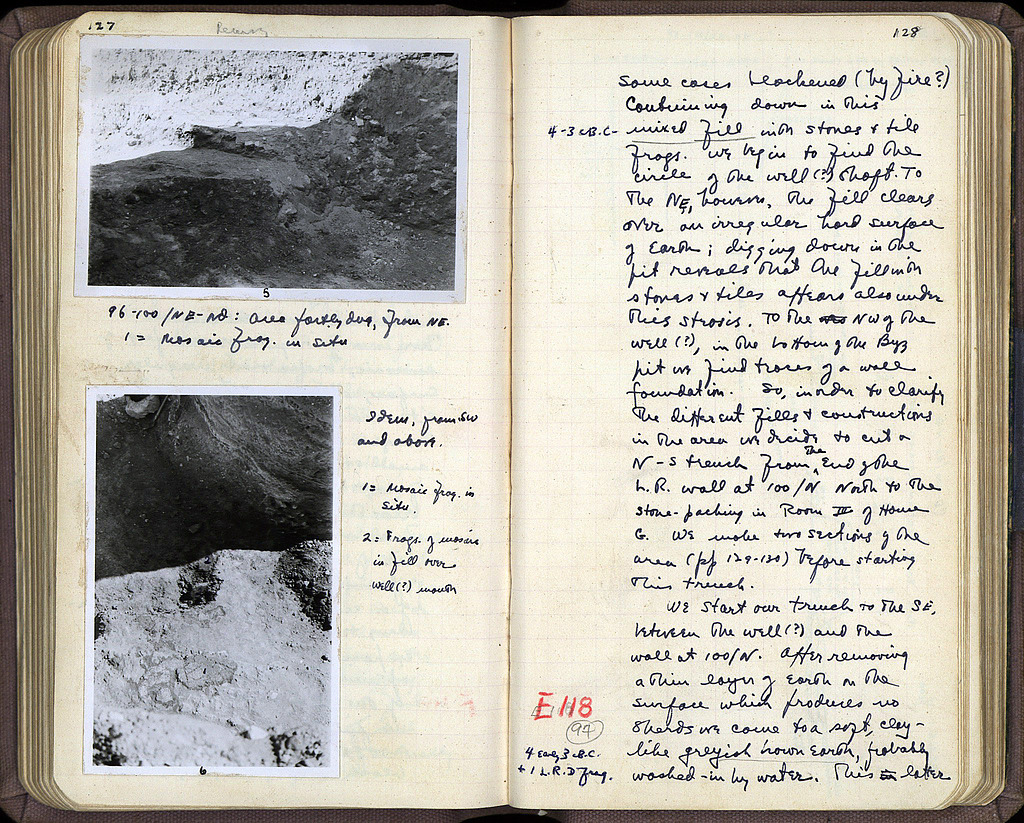 127
5
96-100/NE-ΝΘ: area partly dug, from NE.
1 = Mosaic frag. in situ
Idem, from SW
and above.
1 = Mosaic frag. in
situ.
2 = Frags. of mosaic
in fill over
well(?) mouth
6
128
some cases blackened (by fire?)
Continuing down in this
4-3 c B.C. - mixed fill with stones & tile
frags. we begin to find the
circle of the well (?) shaft. To
the NE, however, the fill clears
over an irregular hard surface
of Earth; digging down in the
pit reveals that the fill with
stones & tiles appears also under
this strosis. To the NW of the
well (?), in the bottom of the Byz
pit we find traces of a wall
foundation. So, in order to clarify
the different fills & constructions
in the area we decide to cut a
N-S trench from the End of the
L.R. wall at 100/N North to the
stone-packing in Room III of House
G. We make two sections of the
area (pp 129-130) before starting
this trench.
We start our trench to the SE,
between the well (?) and the
wall at 100/N. After removing
a thin layer of Earth on the
surface which produces no
E 118
97
sherds we come to a soft, clay-
4 Early 3 c B.C.
like greyish brown Earth, probably
+ 1 L.R. D frag.
washed-in by water. This later